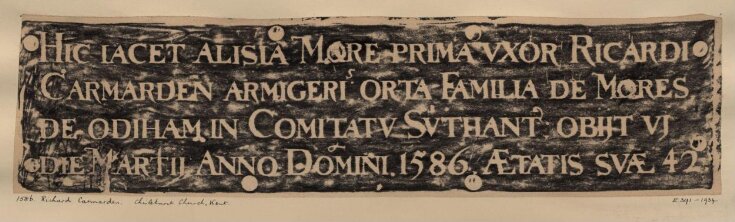 HIC IACET ALISIA MORE PRIMA VXOR RICARDI
CARMARDEN ARMIGERI ORTA FAMILIA DE MORES
DE ODIHAM IN COMITATV SVTHANT OBIIT VJ
DIE MARTIJ ANNO DOMINI. 1586. ÆTATIS SVÆ 42
1586. Richard Carmarden. Chislehurst Church, Kent E.391-1934